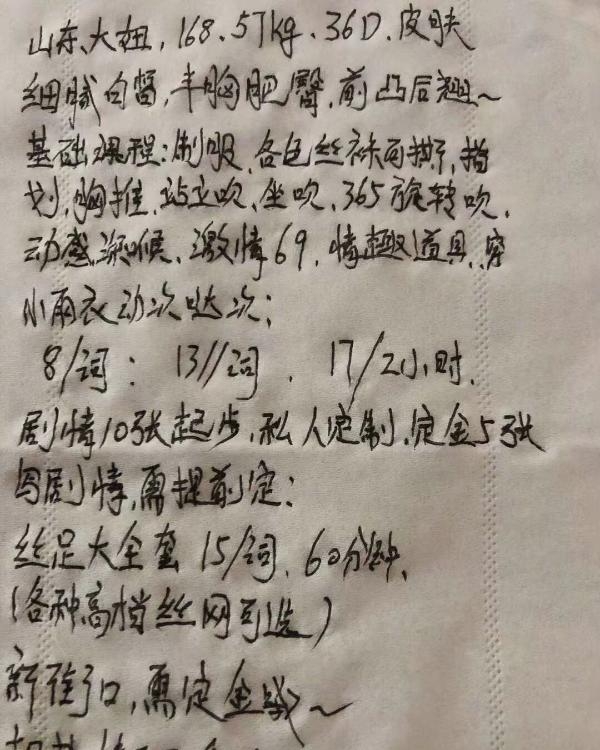 山东、大妞，168.57kg、36D.皮肤
细腻白皙，丰胸肥臀，前凸后翘~
基础课程：制服、各色丝袜可撕，指
划，胸推、站立吹、坐吹、365旋转吹、
动感深喉、激情69，情趣道具，穿
小雨衣动次哒次；
8/词： 13//词 、 17/2小时.
剧情10张起步，私人定制，定金5张
写剧情，需提前定；
丝足大全套 15/词，60分钟，
（各种高档丝网可选）
新街口，需定金哦~